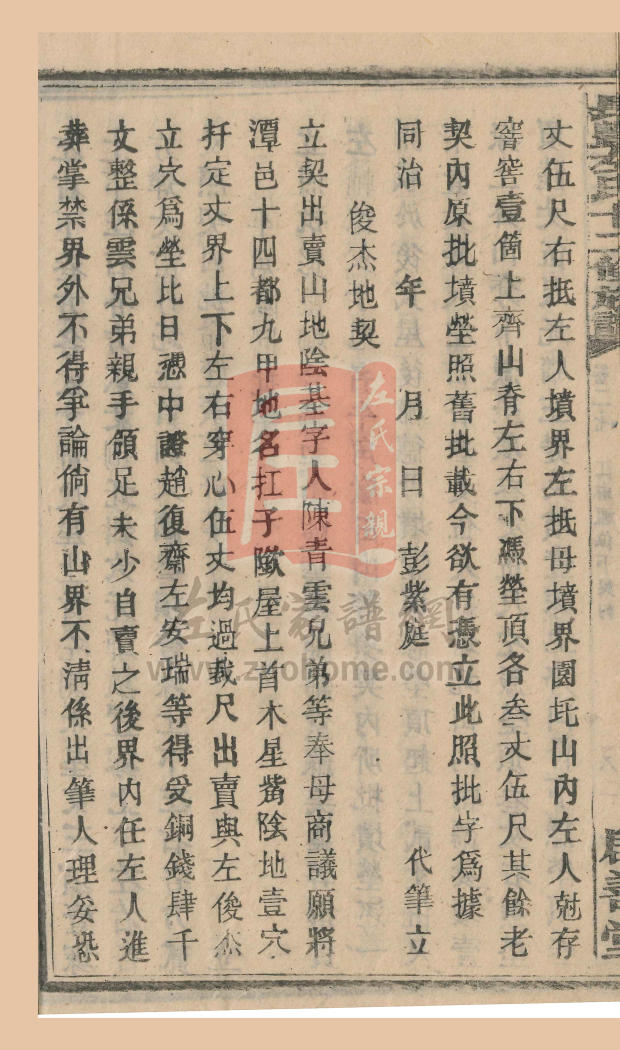 丈伍尺右抵左人墳界左抵母墳界園圫山內左人尅存
窨窖壹箇上齊山脊左右下憑塋頂各叁丈伍尺其餘老
契內原批墳塋照舊批載今欲有憑立此照批字爲據
同治 年 月 日 彭紫庭 代筆立
俊杰地契
立契出賣山地陰基字人陳青雲兄弟等奉母商議願將
潭邑十四都九甲地名扛子隞屋上首木星觜陰地壹穴
扦定丈界上下左右穿心伍丈均過裁尺出賣與左俊杰
立穴爲塋比日憑中證趙復齋左安瑞等得受銅錢肆千
文整係雲兄弟親手領足未少自賣之後界內任左人進
葬掌禁界外不得爭論倘有山界不清係出筆人理妥恐
左氏宗親
左氏家譜網
www.zuohome.com